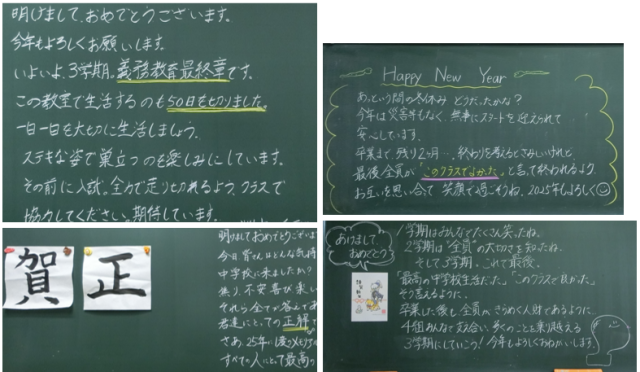 明けまして、おめでとうございます。
今年もよろしくお願いします。
いよいよ、3学期。義務教育最終章です。
この教室で生活するのも50日を切りました。
一日一日を大切に生活しましょう。
ステキな姿で巣立つのを楽しみにしています。
その前に入試。全力で走りきれるよう、クラスで
協力してください。期待しています。
Happy New Year
あっという間の冬休み どうだったかな?
今年は災害もなく、無事にスタートを迎えられて
安心しています。
卒業まで残り2ヶ月…。終わりを考えるとさみしいけれど
最後、全員が"このクラスでよかった。"と言って終われるよう
お互いを思い合って 笑顔で過ごそうね。2025年もよろしく
賀 正
明けましておめでとうござい
今日、皆さんはどんな気持
中学校に来ましたか?
焦り、不安、喜び、楽し
それら全てが答えであ
君達にとっての正解
さあ、25年
すべての人にとって最高の
あけまして、
おめでとう
1学期はみんなでたくさん笑ったね。
2学期は"全員"の大切さを知ったね。
そして3学期。これで最後。
「最高の中学校生活だった。」「このクラスで良かった。」
そう言えるように…
卒業した後も全員がきらめく人財であるように…
4組みんなで支え合い、多くのことを乗り越える
3学期にしていこう!今年もよろしくおねがいします。